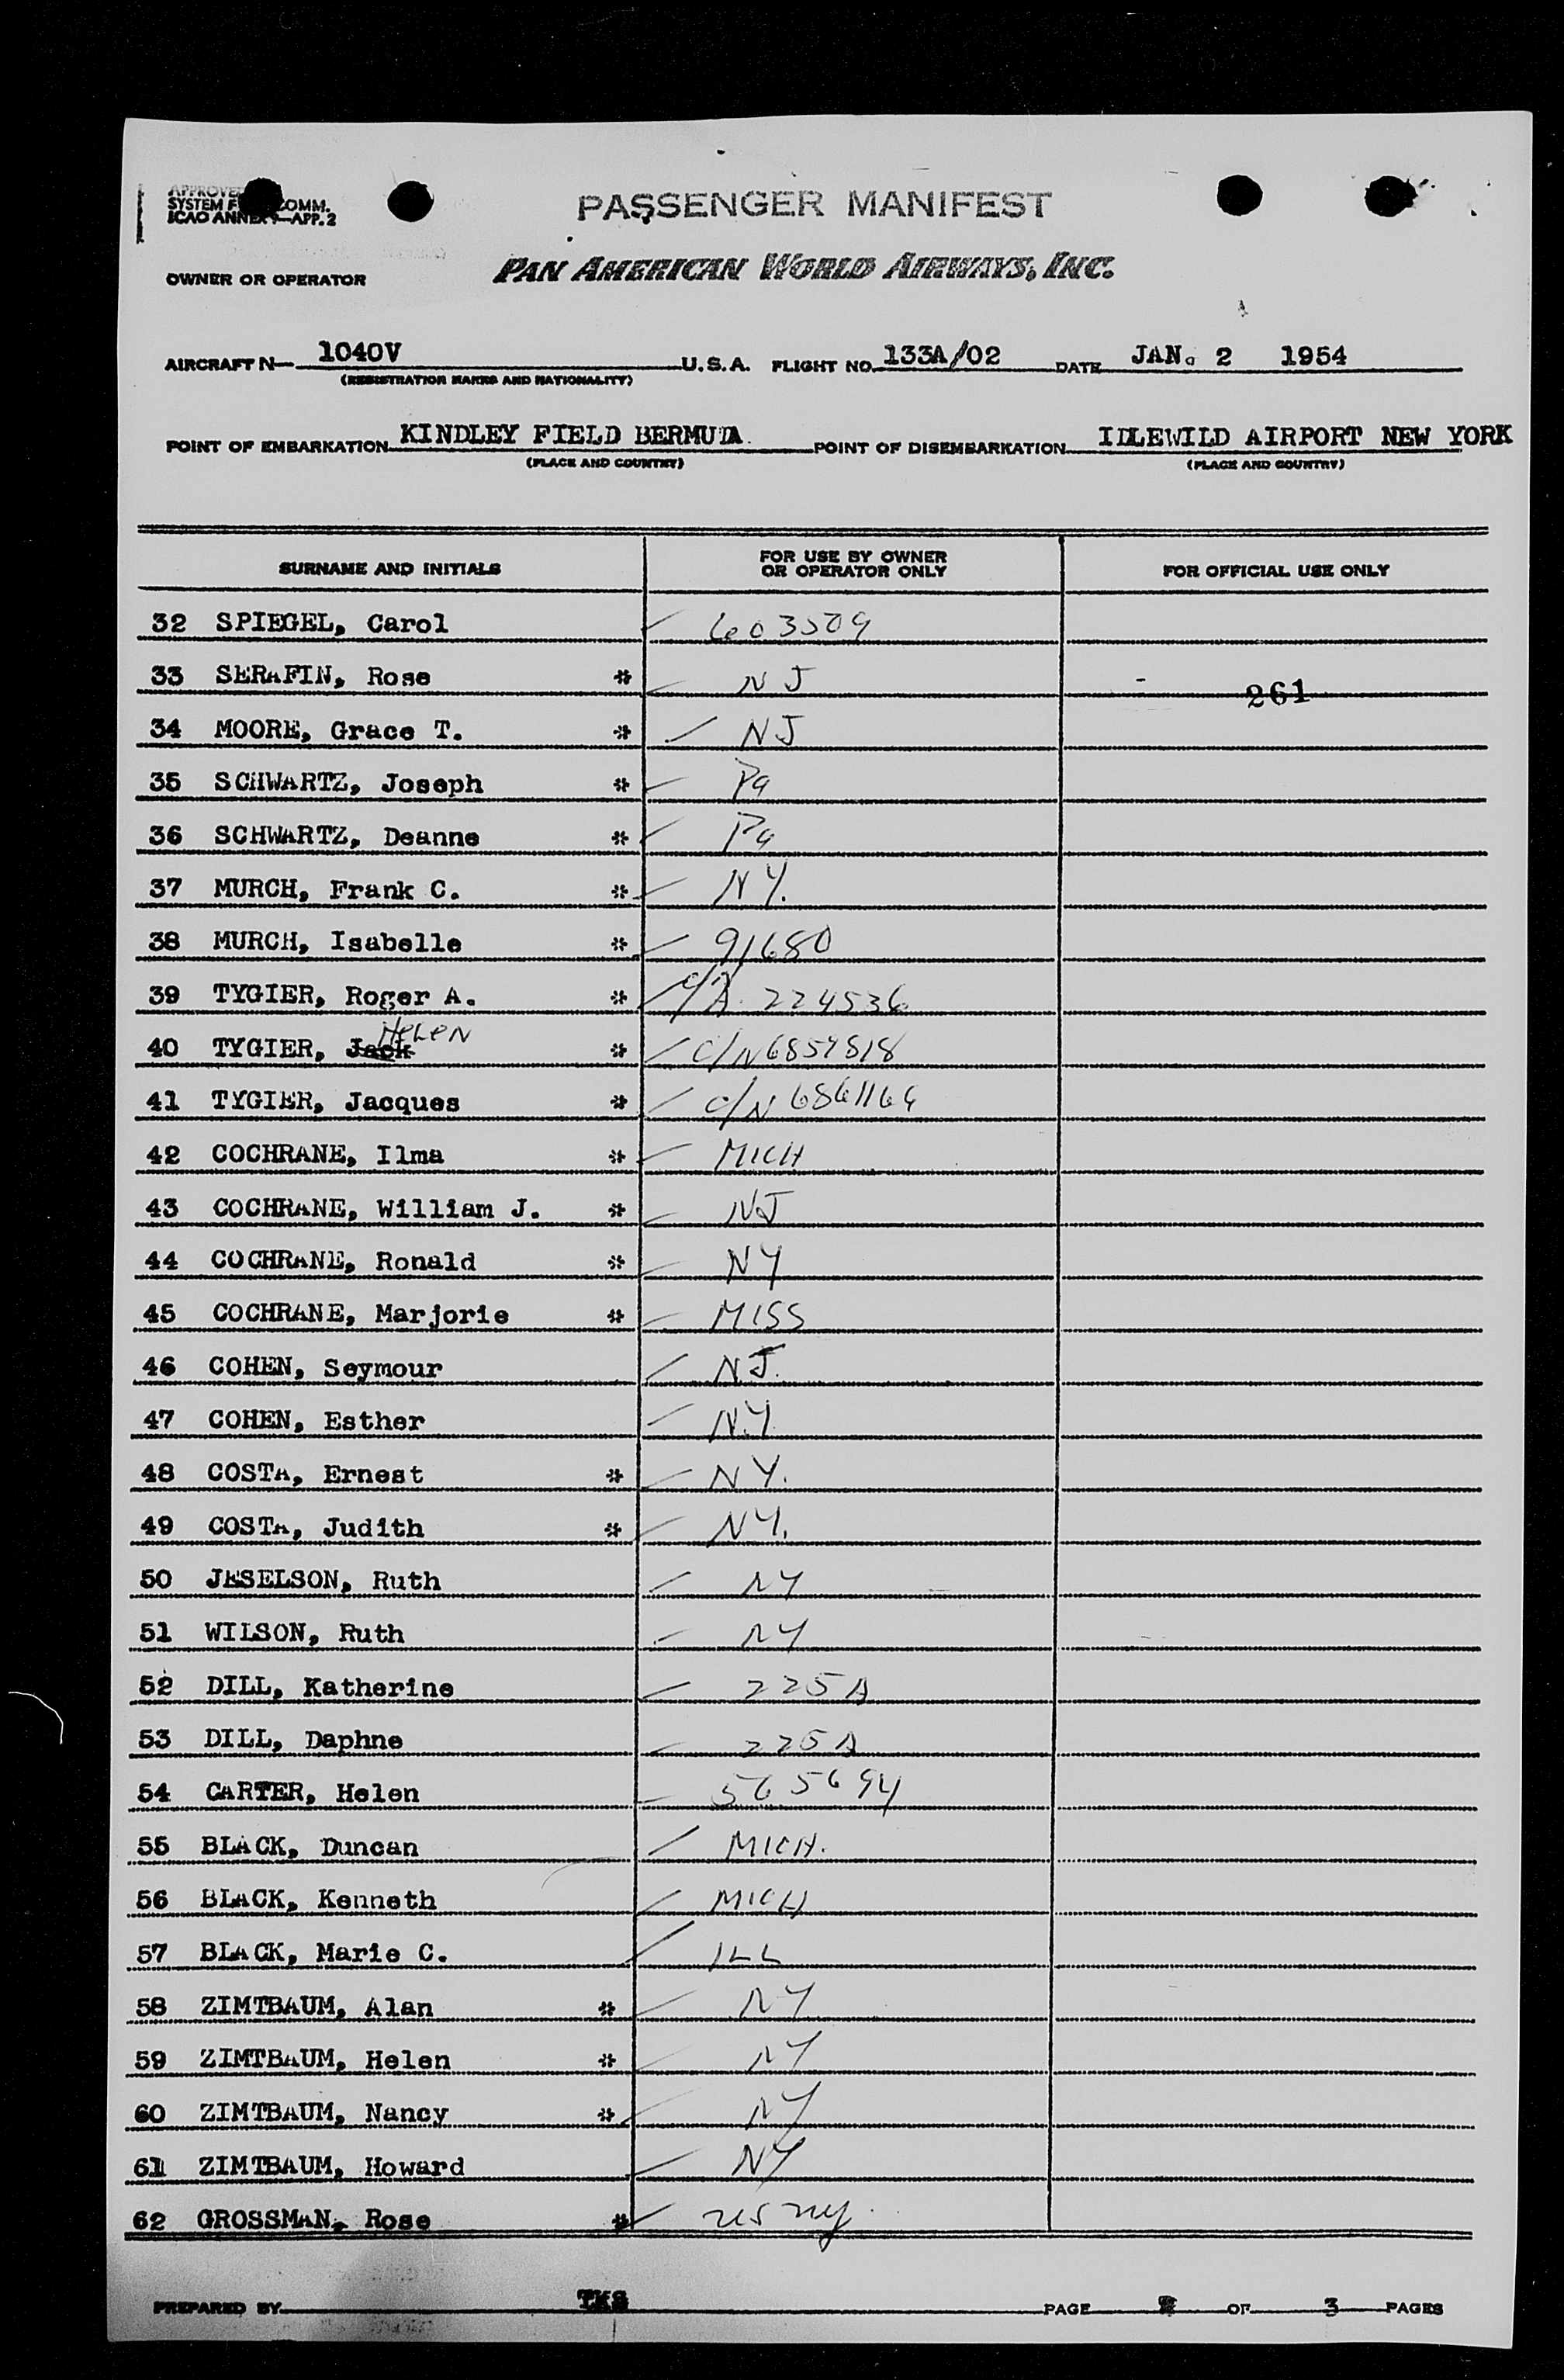 APPROVED
SYSTEM COMM.
ICAO ANNEX 9—APP. 2
PASSENGER MANIFEST
OWNER OR OPERATOR PAN AMERICAN WORLD AIRWAYS, INC.
AIRCRAFT N— 1040V U.S.A. FLIGHT NO. 133A/02 DATE JAN. 2 1954
(REGISTRATION MARKS AND NATIONALITY)
POINT OF EMBARKATION KINDLEY FIELD BERMUDA POINT OF DISEMBARKATION IDLEWILD AIRPORT NEW YORK
(PLACE AND COUNTRY) (PLACE AND COUNTRY)
SURNAME AND INITIALS FOR USE BY OWNER OR OPERATOR ONLY FOR OFFICIAL USE ONLY
32 SPIEGEL, Carol 603509
33 SERAFIN, Rose * NJ 261
34 MOORE, Grace T. * NJ
35 SCHWARTZ, Joseph * Pa
36 SCHWARTZ, Deanne * Pa
37 MURCH, Frank C. * NY.
38 MURCH, Isabelle * 91680
39 TYGIER, Roger A. * C/A 224536
40 TYGIER, Jack HELEN * C/N 6859818
41 TYGIER, Jacques * C/N 6861164
42 COCHRANE, Ilma * MICH
43 COCHRANE, William J. * NJ
44 COCHRANE, Ronald * NY
45 COCHRANE, Marjorie * MISS
46 COHEN, Seymour N.J.
47 COHEN, Esther N.Y.
48 COSTA, Ernest * NY.
49 COSTA, Judith * NY.
50 JESELSON, Ruth NY
51 WILSON, Ruth NY
52 DILL, Katherine 225A
53 DILL, Daphne 225A
54 CARTER, Helen 565694
55 BLACK, Duncan MICH.
56 BLACK, Kenneth MICH
57 BLACK, Marie C. ILL
58 ZIMTBAUM, Alan * NY
59 ZIMTBAUM, Helen * NY
60 ZIMTBAUM, Nancy * NY
61 ZIMTBAUM, Howard NY
62 GROSSMAN, Rose * ny.
PREPARED BY TKS PAGE 2 OF 3 PAGES